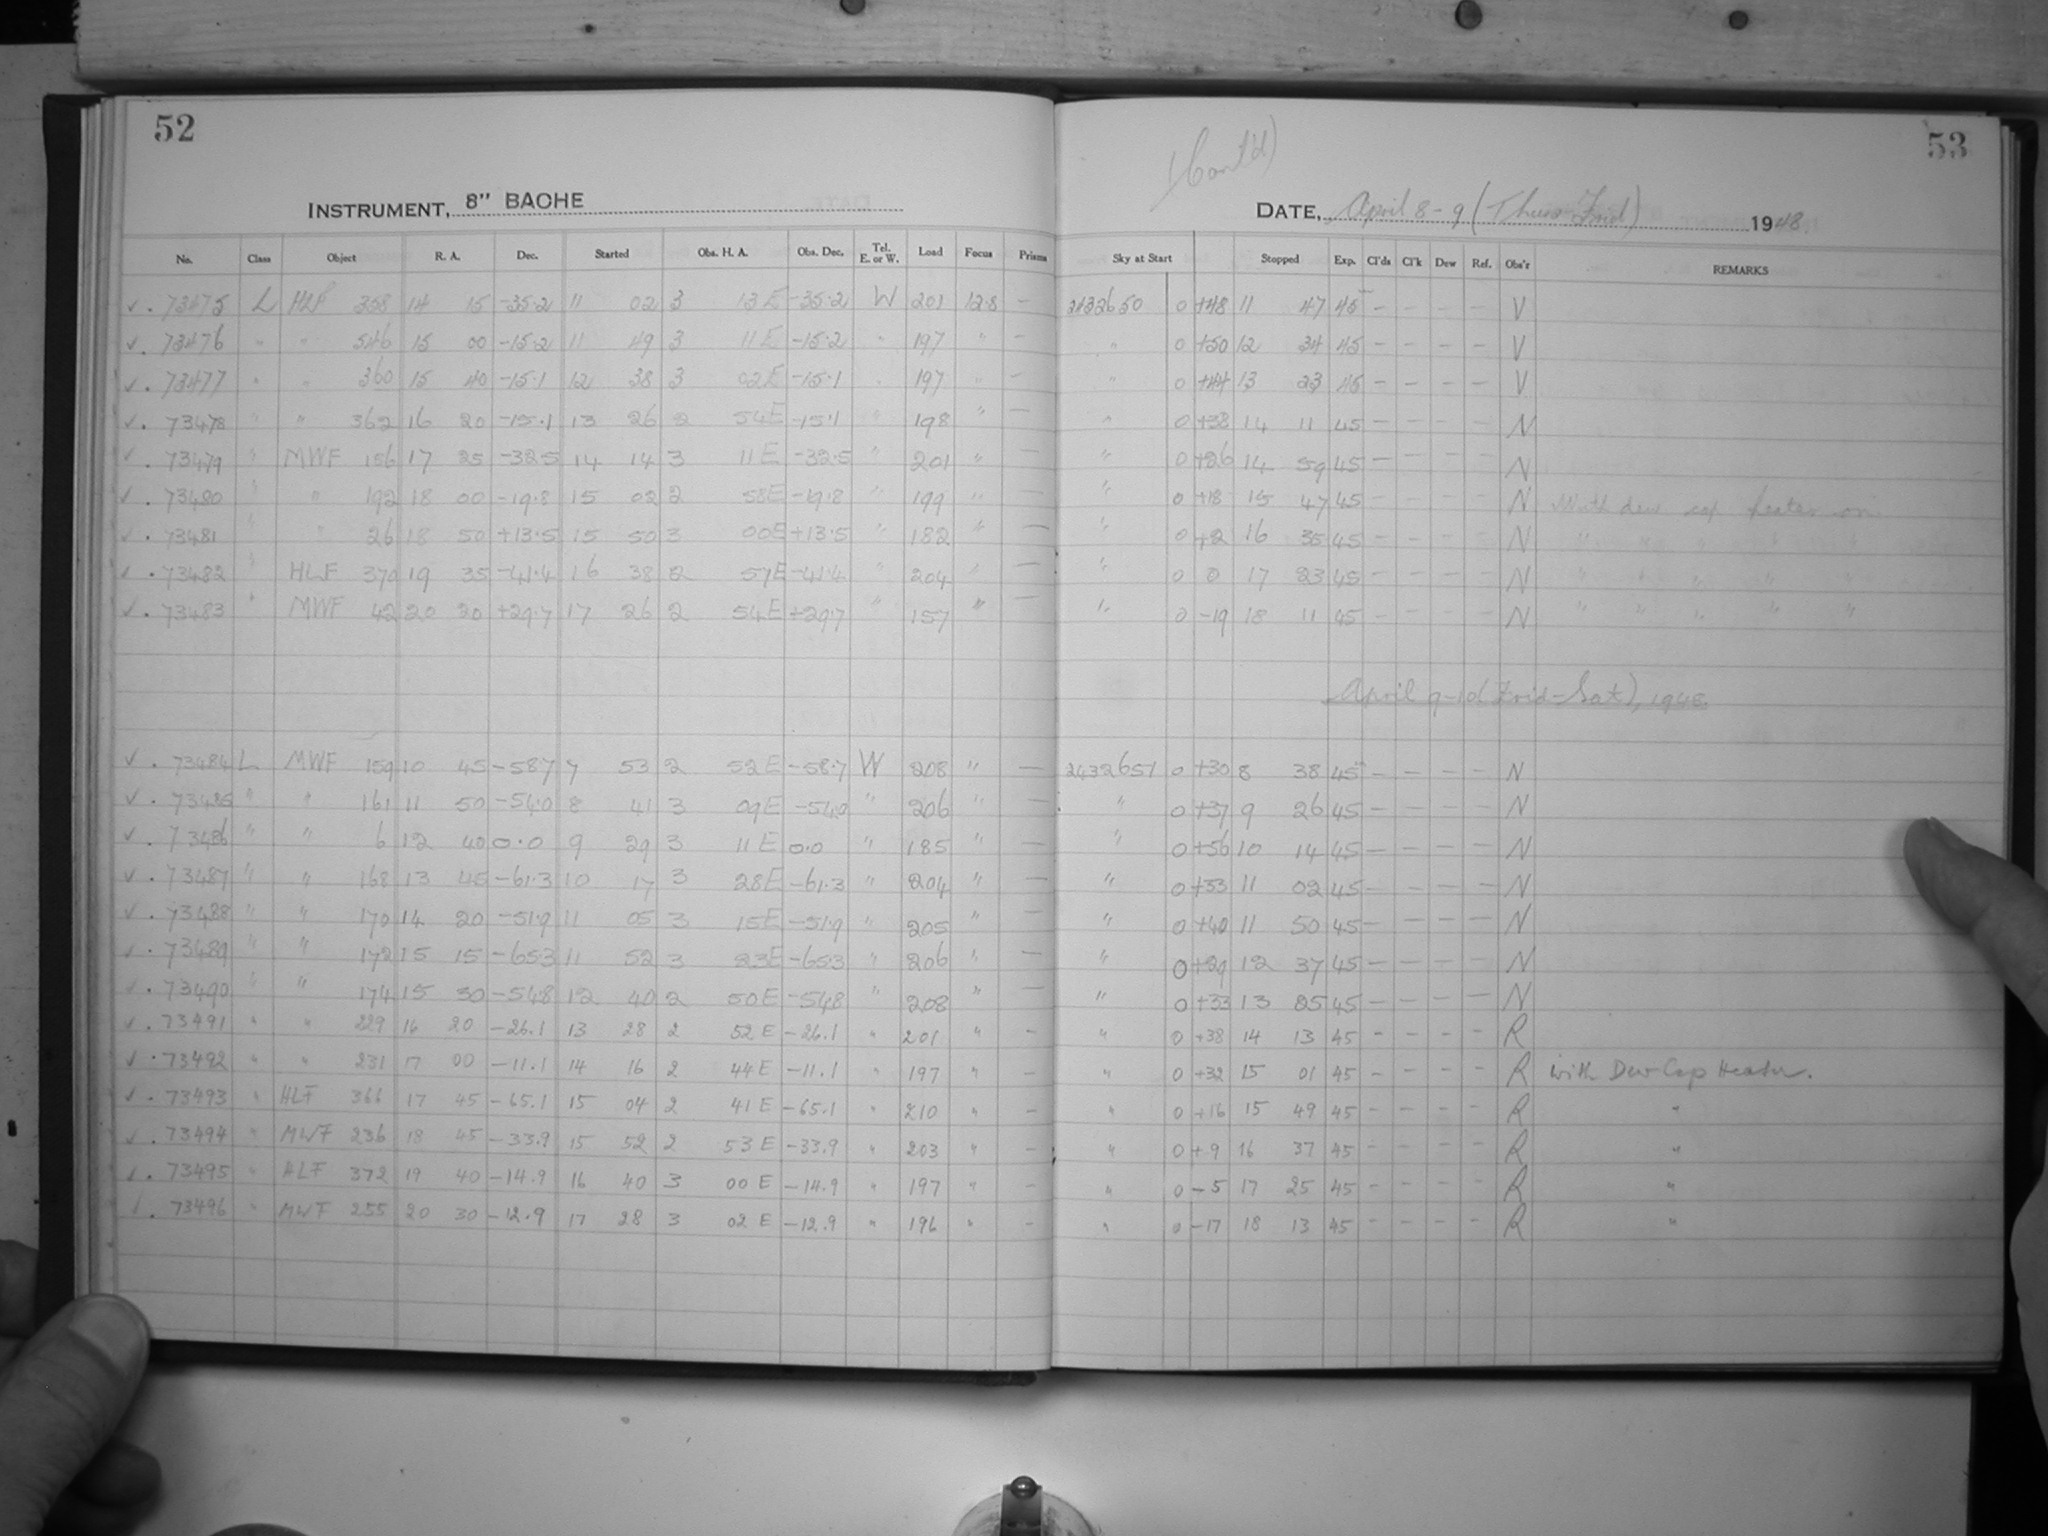 52
53
(Cont'd)
INSTRUMENT, 8" BACHE
DATE, April 8-9 (Thurs-Frid) 1948.
No. Class Object R. A. Dec. Started Obs. H. A. Obs. Dec. Tel. E. or W. Load Focus Prisms Sky at Start Stopped Exp. Cl'ds Cl'k Dew Ref. Obs'r REMARKS
✓ . 73475 L HLF 358 14 15 -35.2 11 02 3 13 E -35.2 W 201 12.8 — 2432650 0 +48 11 47 45 – – – – V
✓ . 73476 " " 546 15 00 -15.2 11 49 3 11 E -15.2 " 197 " — " 0 +50 12 34 45 – – – – V
✓ . 73477 " " 360 15 40 -15.1 12 38 3 02 E -15.1 " 197 " — " 0 +44 13 23 45 – – – – V
✓ . 73478 " " 362 16 20 -15.1 13 26 2 54 E -15.1 " 198 " — " 0 +38 14 11 45 – – – – N
✓ . 73479 " MWF 156 17 25 -32.5 14 14 3 11 E -32.5 " 201 " — " 0 +26 14 59 45 – – – – N
✓ . 73480 " " 192 18 00 -19.8 15 02 2 58 E -19.8 " 199 " — " 0 +18 15 47 45 – – – – N With dew cap heater on
✓ . 73481 " " 26 18 50 +13.5 15 50 3 00 E +13.5 " 182 " — " 0 +2 16 35 45 – – – – N " " " " "
✓ . 73482 " HLF 370 19 35 -41.4 16 38 2 57 E -41.4 " 204 " — " 0 0 17 23 45 – – – – N " " " " "
✓ . 73483 " MWF 42 20 20 +29.7 17 26 2 54 E +29.7 " 157 " — " 0 -19 18 11 45 – – – – N " " " " "
April 9-10 (Frid-Sat), 1948.
✓ . 73484 L MWF 159 10 45 -58.7 7 53 2 52 E -58.7 W 208 " — 2432651 0 +30 8 38 45 – – – – N
✓ . 73485 " " 161 11 50 -54.0 8 41 3 09 E -54.0 " 206 " — " 0 +37 9 26 45 – – – – N
✓ . 73486 " " 6 12 40 0.0 9 29 3 11 E 0.0 " 185 " — " 0 +56 10 14 45 – – – – N
✓ . 73487 " " 168 13 45 -61.3 10 17 3 28 E -61.3 " 204 " — " 0 +33 11 02 45 – – – – N
✓ . 73488 " " 170 14 20 -51.9 11 05 3 15 E -51.9 " 205 " — " 0 +40 11 50 45 – – – – N
✓ . 73489 " " 172 15 15 -65.3 11 52 3 23 E -65.3 " 206 " — " 0 +29 12 37 45 – – – – N
✓ . 73490 " " 174 15 30 -54.8 12 40 2 50 E -54.8 " 208 " — " 0 +33 13 25 45 – – – – N
✓ . 73491 " " 229 16 20 -26.1 13 28 2 52 E -26.1 " 201 " – " 0 +38 14 13 45 – – – – R
✓ . 73492 " " 231 17 00 -11.1 14 16 2 44 E -11.1 " 197 " – " 0 +32 15 01 45 – – – – R with Dew Cap Heater.
✓ . 73493 " HLF 366 17 45 -65.1 15 04 2 41 E -65.1 " 210 " – " 0 +16 15 49 45 – – – – R "
✓ . 73494 " MWF 236 18 45 -33.9 15 52 2 53 E -33.9 " 203 " – " 0 +9 16 37 45 – – – – R "
✓ . 73495 " HLF 372 19 40 -14.9 16 40 3 00 E -14.9 " 197 " – " 0 -5 17 25 45 – – – – R "
✓ . 73496 " MWF 255 20 30 -12.9 17 28 3 02 E -12.9 " 196 " – " 0 -17 18 13 45 – – – – R "